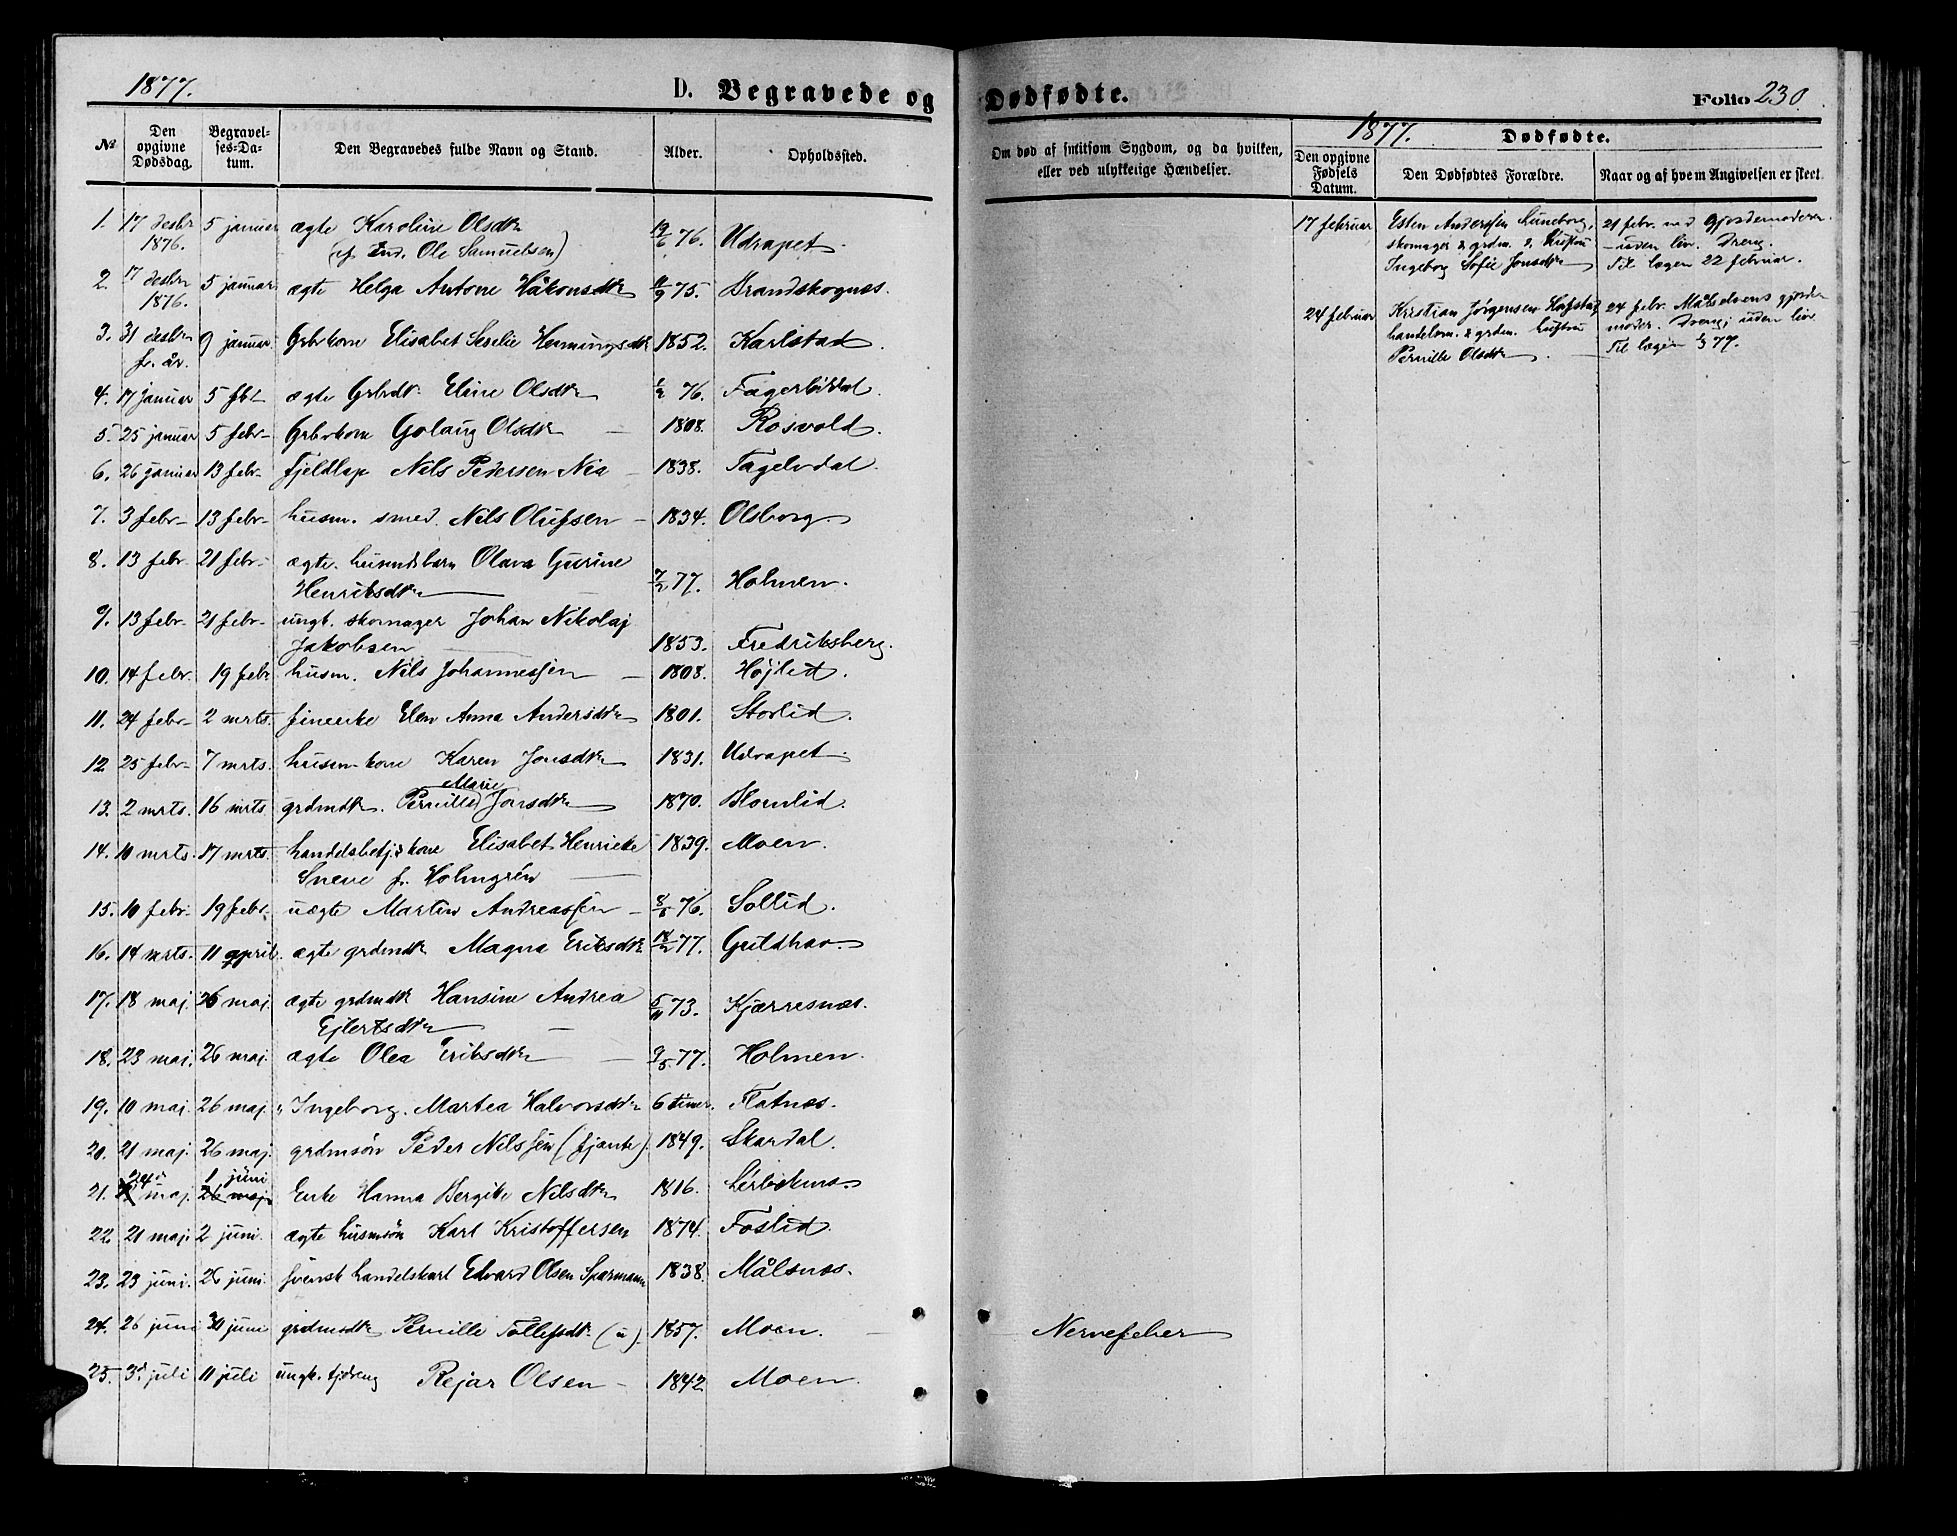 1877.
D. Begravede og
Dødfødte.
Folio 230.
№
Den opgivne Dødsdag.
Begravelses-Datum.
Den Begravedes fulde Navn og Stand.
Alder.
Opholdssted.
Om død af smitsom Sygdom, og da hvilken, eller ved ulykkelige Hændelser.
1877.
Dødfødte.
Den opgivne Fødsels Datum.
Den Dødfødtes Forældre.
Naar og af hvem Angivelsen er skeet.
1. 17 desbr 1876. 5 januar ægte Karoline Olsdtr 19/6 76. Udrapet.
(af Ind. Ole Samuelsen)
2. 17 desbr 1876. 5 januar ægte Helga Antone Håkonsdtr 75. Brandskognes.
3. 31 desbr f. år. 9 januar Gbrkone Elisabet Serelie Henningsdtr 1852. Karlstad.
4. 17 januar 5 ægte Gbrdtr Eline Olsdtr 76. Fagerlidal.
5. 25 januar 5 febr Gbrkone Golaug Olsdtr 1808. Rosvold.
6. 26 januar 13 febr fjeldlap Nils Pedersen Nia 1838. Tagelvdal.
7. 3 febr 13 febr husm. smed. Nils Olufsen 1834. Olsborg.
8. 13 febr 21 febr ægte husmdsbarn Olava Gurine
Henriksdtr 7/2 77. Holmen.
9. 13 febr 21 febr ungk. skomager Johan Nikolaj
Jakobsen 1853. Fredriksberg.
10. 14 febr. 19 febr husm. Nils Johannessen 1808. Højlid.
11. 24 febr 2 mrts. fineenke Elen Anna Andersdtr 1801. Storlid.
12. 25 febr 7 mrts. husm-kone Karen Jonsdtr 1831. Udrapet.
13. 2 mrts. 16 mrts grdmdtr. Pernille Marie Jonsdtr 1870. Blomlid.
14. 10 mrts. 17 mrts. handelsbetj.s kone Elisabet Henrieke 1839. Moen.
Sneve f. Holmgrén
15. 10 febr. 19 febr. uægte Martin Andreassen 8/5 76. Sollid.
16. 14 mrts. 11 april. ægte grdmdtr Magna Eriksdtr 18/2 77. Guldhav.
17. 18 maj. 26 maj. ægte grdmdtr Hansine Andrea 5/11 73. Kjærresnæs.
Ejlertsdtr
18. 23 maj. 26 maj. ægte Olea Eriksdtr 9/5 77. Holmen.
19. 10 maj. 26 maj. " Ingeborg Martea Halvorsdtr 6 timer. Flatnæs.
20. 21 maj. 26 maj. grdmsøn Peder Nilssen (fjante). 1849. Skardal.
21. 24de maj. 1 juni 26 maj. Enke Hanna Bergite Nilsdtr 1816.
22. 21 maj. 2 juni. ægte husmsøn Karl Kristoffersen 1874. Foslid.
23. 23 juni. 26 juni. svensk handelskarl Edvard Olsen Sparmann 1838. Målsnæs.
24. 26 juni 30 juni grdmsdtr Pernille Tollefsdtr (u). 1857. Moen. Nervefeber
25. 3d juli 11 juli ungk. tjdreng Rejar Olsen 1842 Moen.
17 februar Esten Anderssen Luneborg,
skomager & grdm. & hustru
Ingeborg Sofie Jonsdtr
21 febr. ved gjordemoderen
- uden liv. Dreng.
Til lægen 22 februar.
24 februar Kristian Jørgensen Hofstad
handelsm. & grdm. hustru
Pernille Olsdtr
24 febr. Målselvens gjordemoder. Dreng; uden liv.
Til lægen 77.